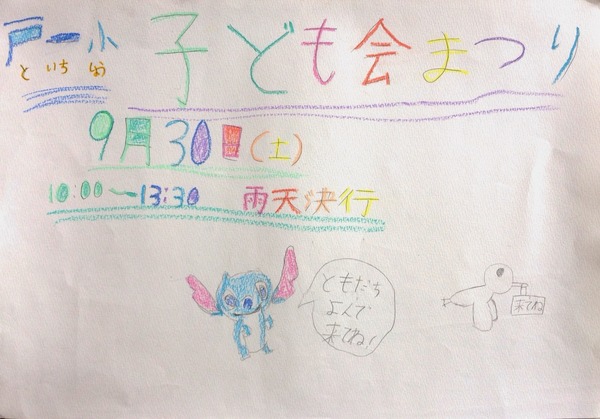 戸一小 子ども会まつり
といちしょう
9月30日(土)
10:00〜13:30 雨天決行
ともだち
よんで
来てね!
来てね